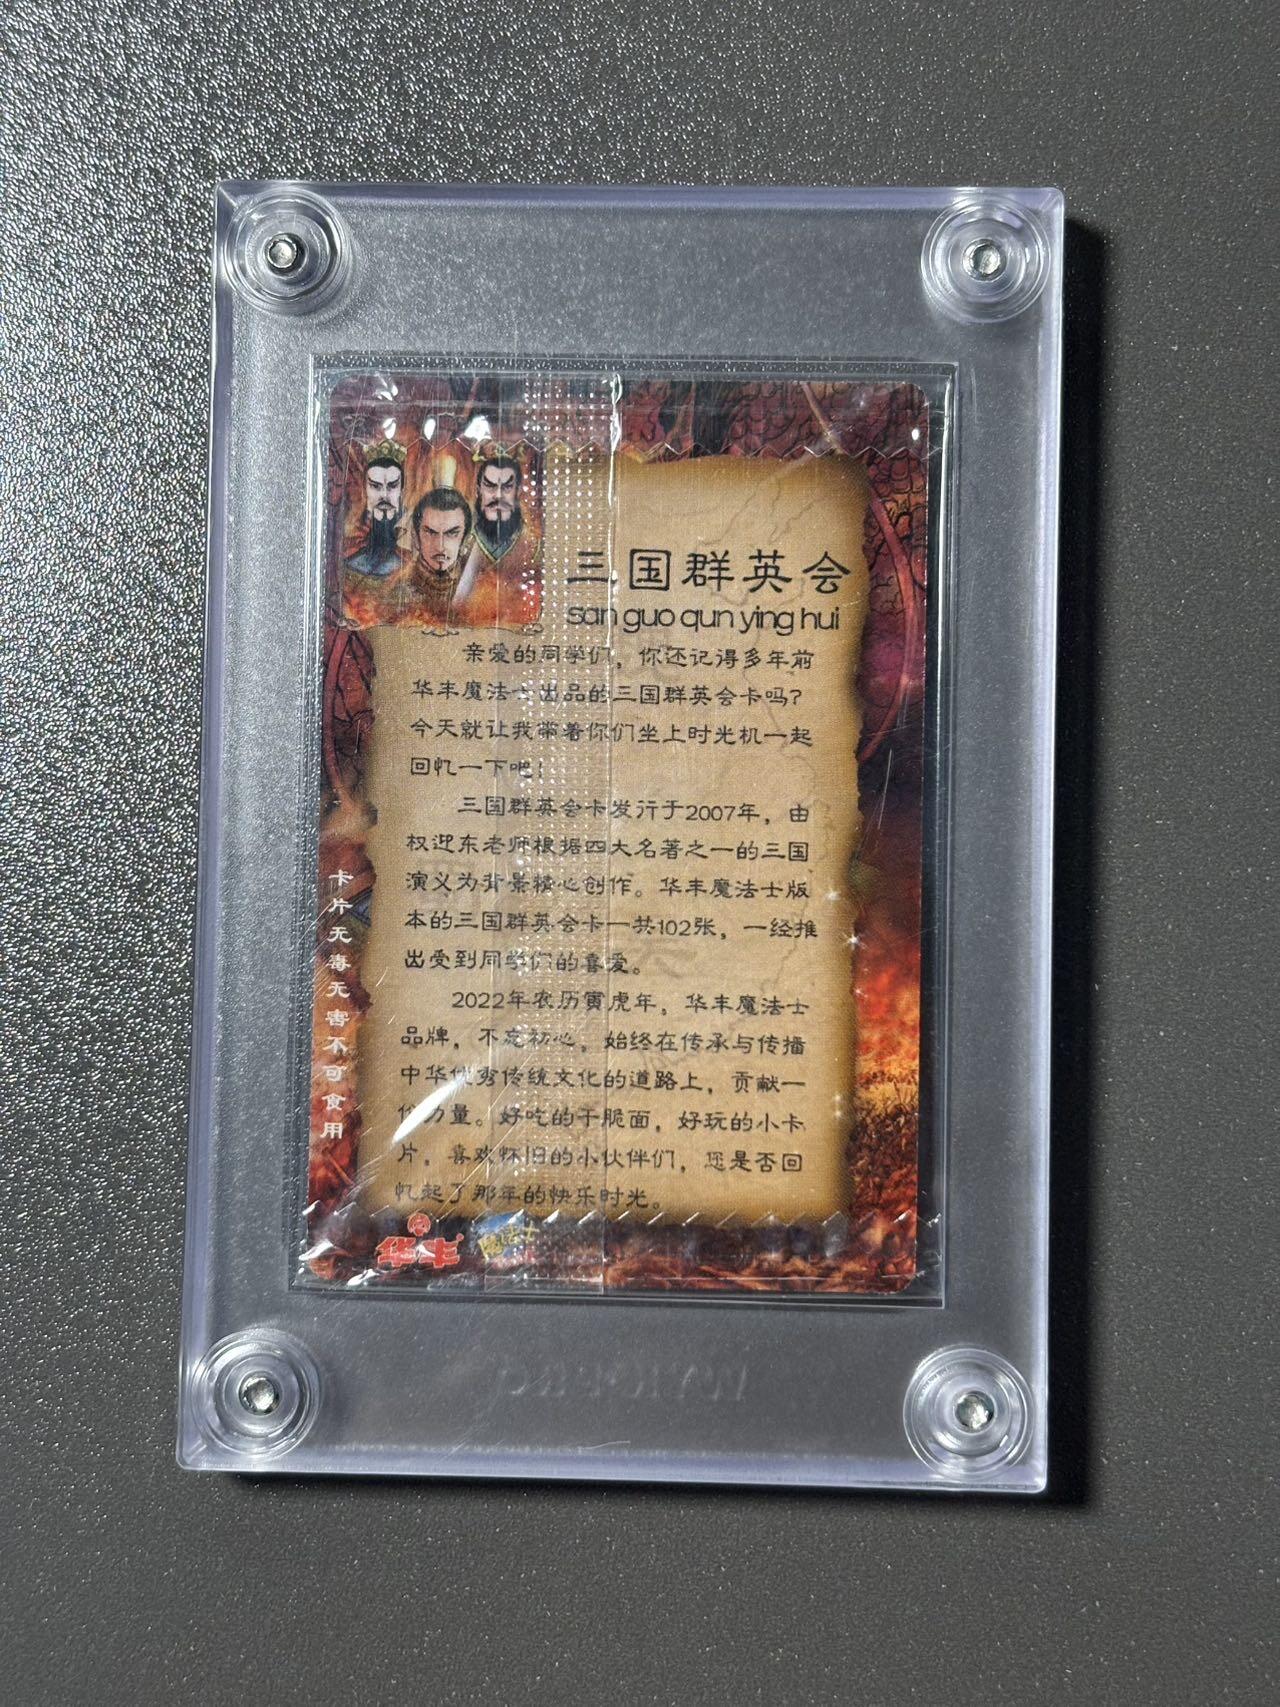 三国群英会
san guo qun ying hui
亲爱的同学们，你还记得多年前
华丰魔法士出品的三国群英会卡吗？
今天就让我带着你们坐上时光机一起
回忆一下吧！
三国群英会卡发行于2007年，由
权迎东老师根据四大名著之一的三国
演义为背景精心创作。华丰魔法士版
本的三国群英会卡一共102张，一经推
出受到同学们的喜爱。
2022年农历寅虎年，华丰魔法士
品牌，不忘初心，始终在传承与传播
中华优秀传统文化的道路上，贡献一
份力量。好吃的干脆面，好玩的小卡
片，喜欢怀旧的小伙伴们，您是否回
忆起了那年的快乐时光。
卡片无毒无害不可食用
华丰
魔法士